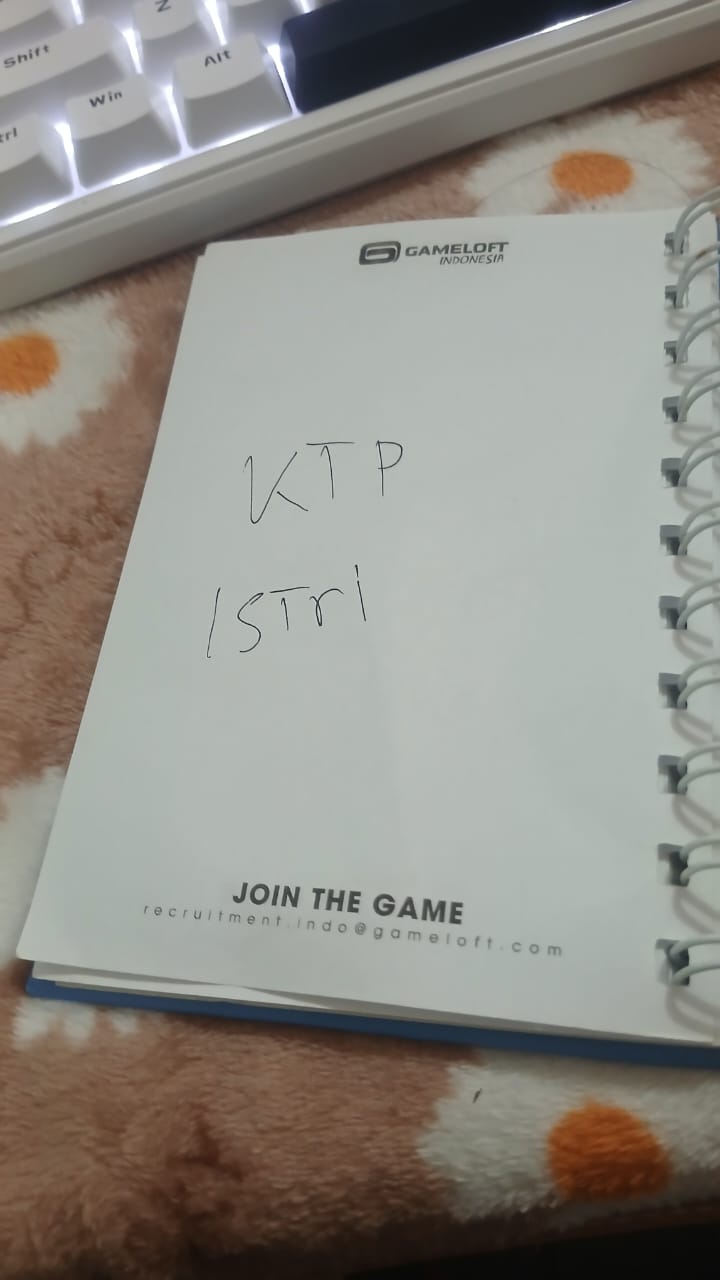 Z
Shift
Alt
Win
trl
GAMELOFT
INDONESIA
KTP
ISTrI
JOIN THE GAME
recruitment.indo@gameloft.com